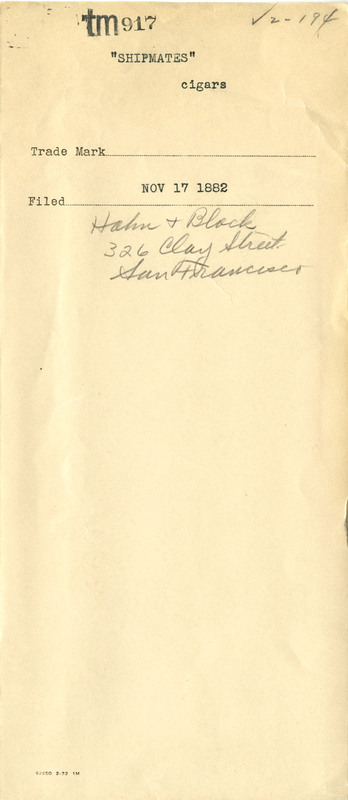 tm 917
√2-194
"SHIPMATES"
cigars
Trade Mark
NOV 17 1882
Filed
Hahn + Block
326 Clay Street.
San Francisco
2-32 1M